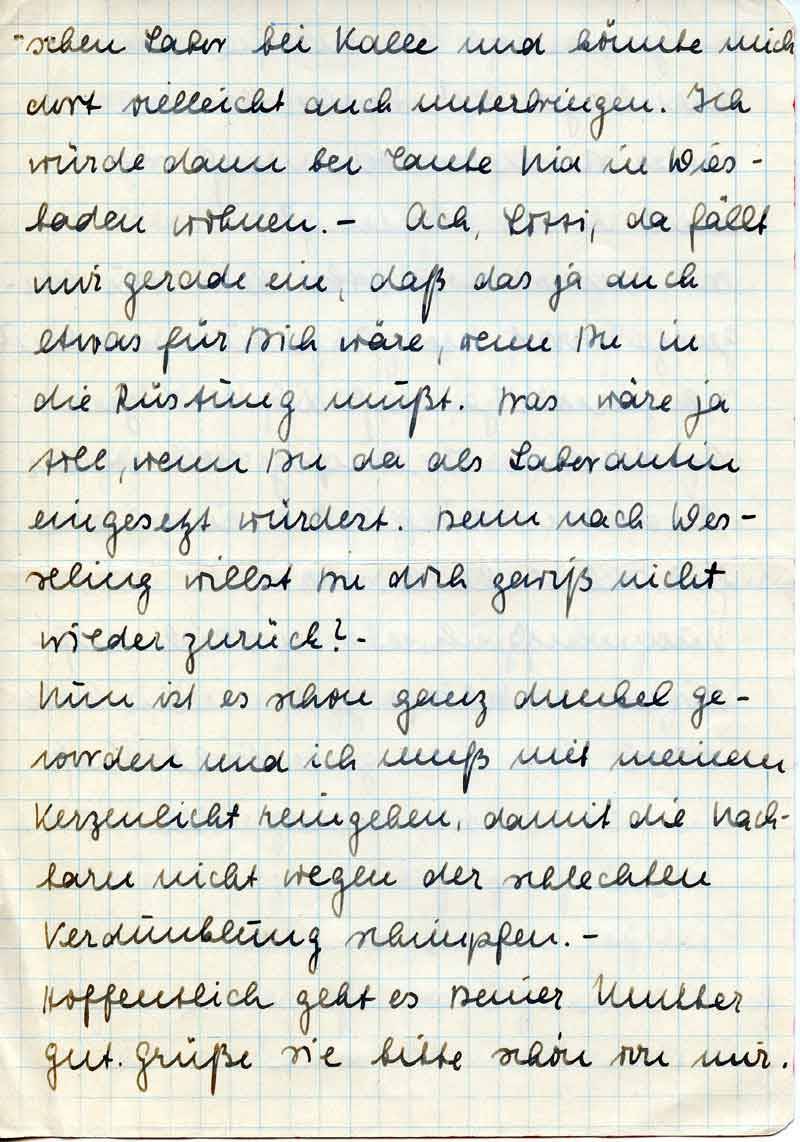 schen Labor bei Kalle und könnte mich
dort vielleicht auch unterbringen. Ich
würde dann bei Tante Mia in Wies-
baden wohnen. – Ach, Lossi, da fällt
mir gerade ein, daß das ja auch
etwas für Dich wäre, wenn Du in
die Rüstung mußt. Das wäre ja
toll, wenn Du da als Laborantin
eingesetzt würdest. Denn nach Wes-
seling willst Du doch gewiß nicht
wieder zurück? -
Nun ist es schon ganz dunkel ge-
worden und ich muß mit meinem
Kerzenlicht reingehen, damit die Nach-
barn nicht wegen der schlechten
Verdunklung schimpfen. –
Hoffentlich geht es Deiner Mutter
gut. Grüße sie bitte schön von mir.